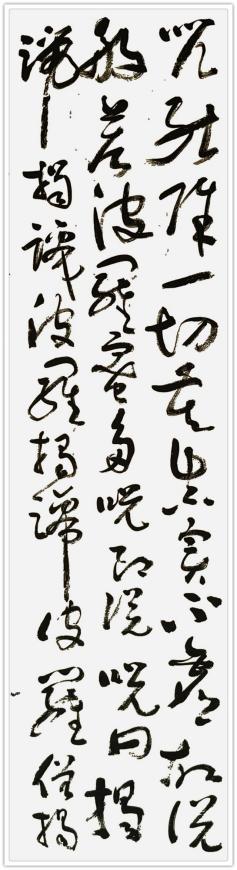 咒能除一切苦真實不虛故說
般若波羅蜜多呪即說呪曰揭
諦揭諦波羅揭諦波羅僧揭